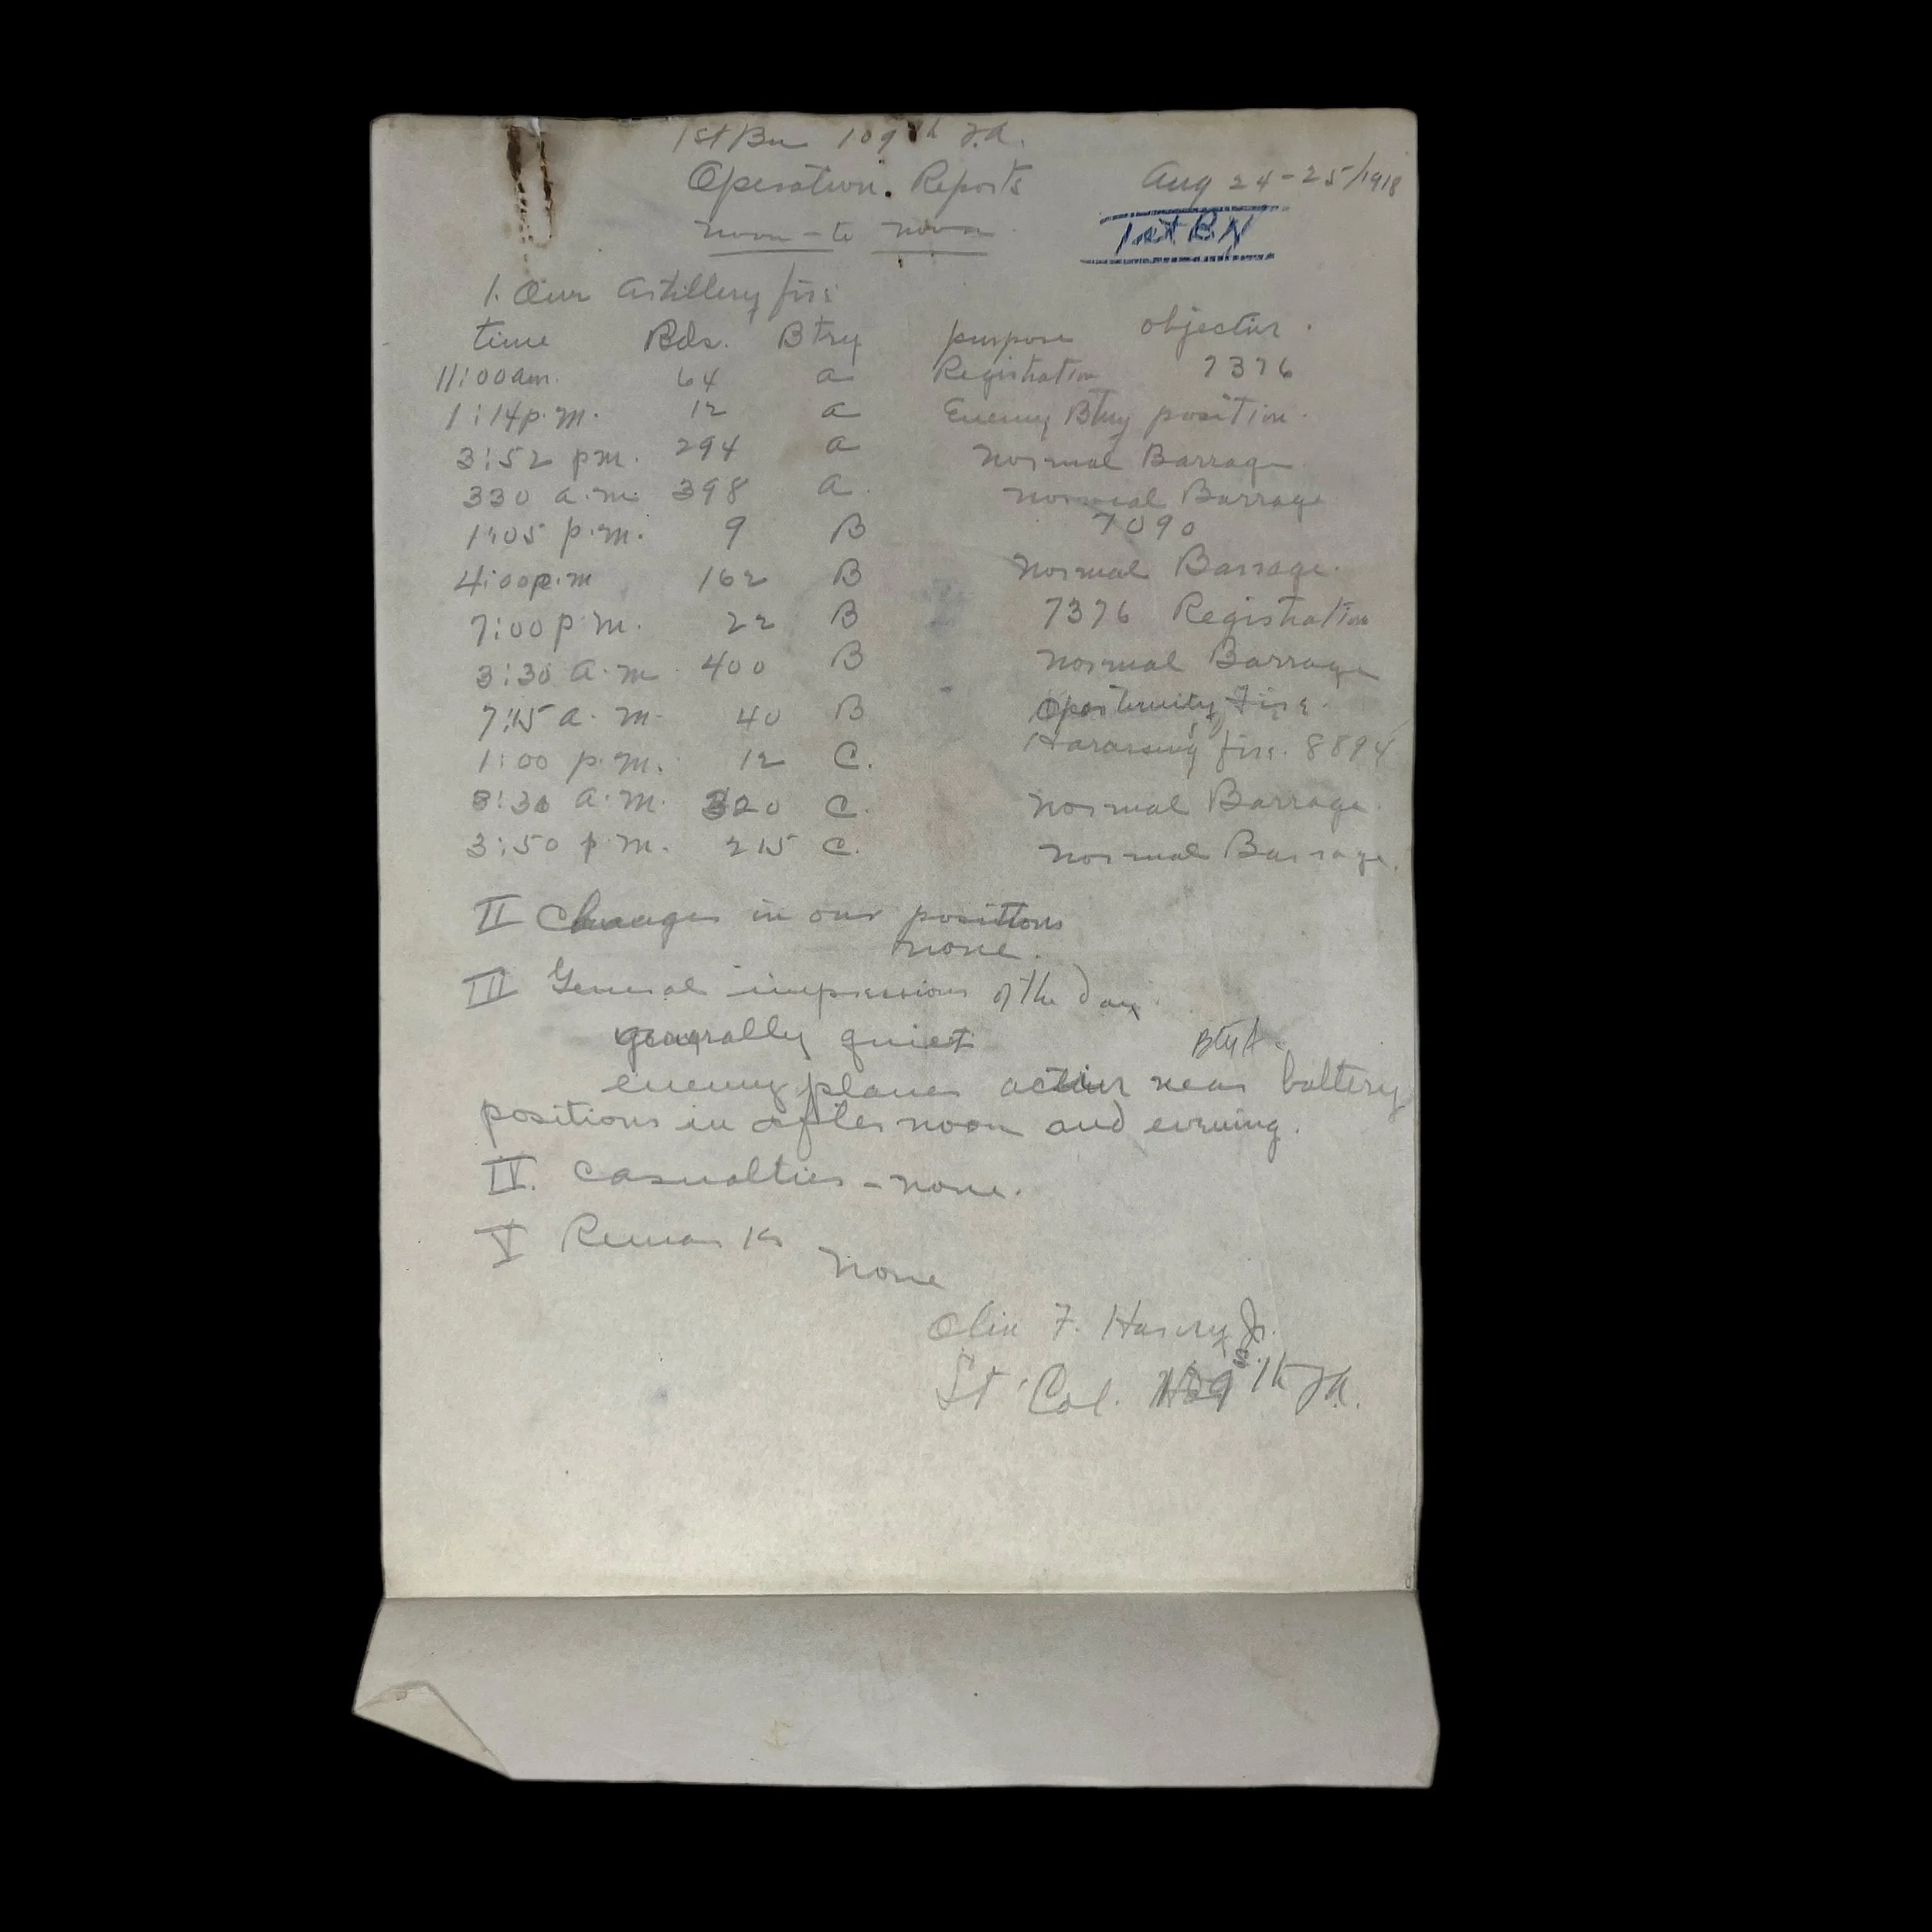 1st Bn 109th F.A.
Operation. Reports Aug 24-25/1918
noon - to noon 1st BN
1. Our Artillery fire
time Rds. Btry purpose objective.
11:00 am. 64 a Registration 7376
1:14 p.m. 12 a Enemy Btry position.
3:52 pm. 294 a Normal Barrage
330 a.m. 398 a. Normal Barrage
1:05 p.m. 9 B 7090
4:00 p.m 162 B Normal Barrage.
7:00 p.m. 22 B 7376 Registration
3:30 a.m. 400 B Normal Barrage
7:15 a.m. 40 B Oportunity Fire.
1:00 p.m. 12 C. Harassing fire. 8894
3:30 a.m. 320 C. Normal Barrage.
3:50 p.m. 215 C. Normal Barrage.
II Changes in our positions
none.
III General impressions of the Day
generally quiet
Btry A
enemy planes active near battery
positions in afternoon and evening.
IV. Casualties - none.
V Remarks
None
Olin F. Harvey Jr.
Lt Col. 109th FA.